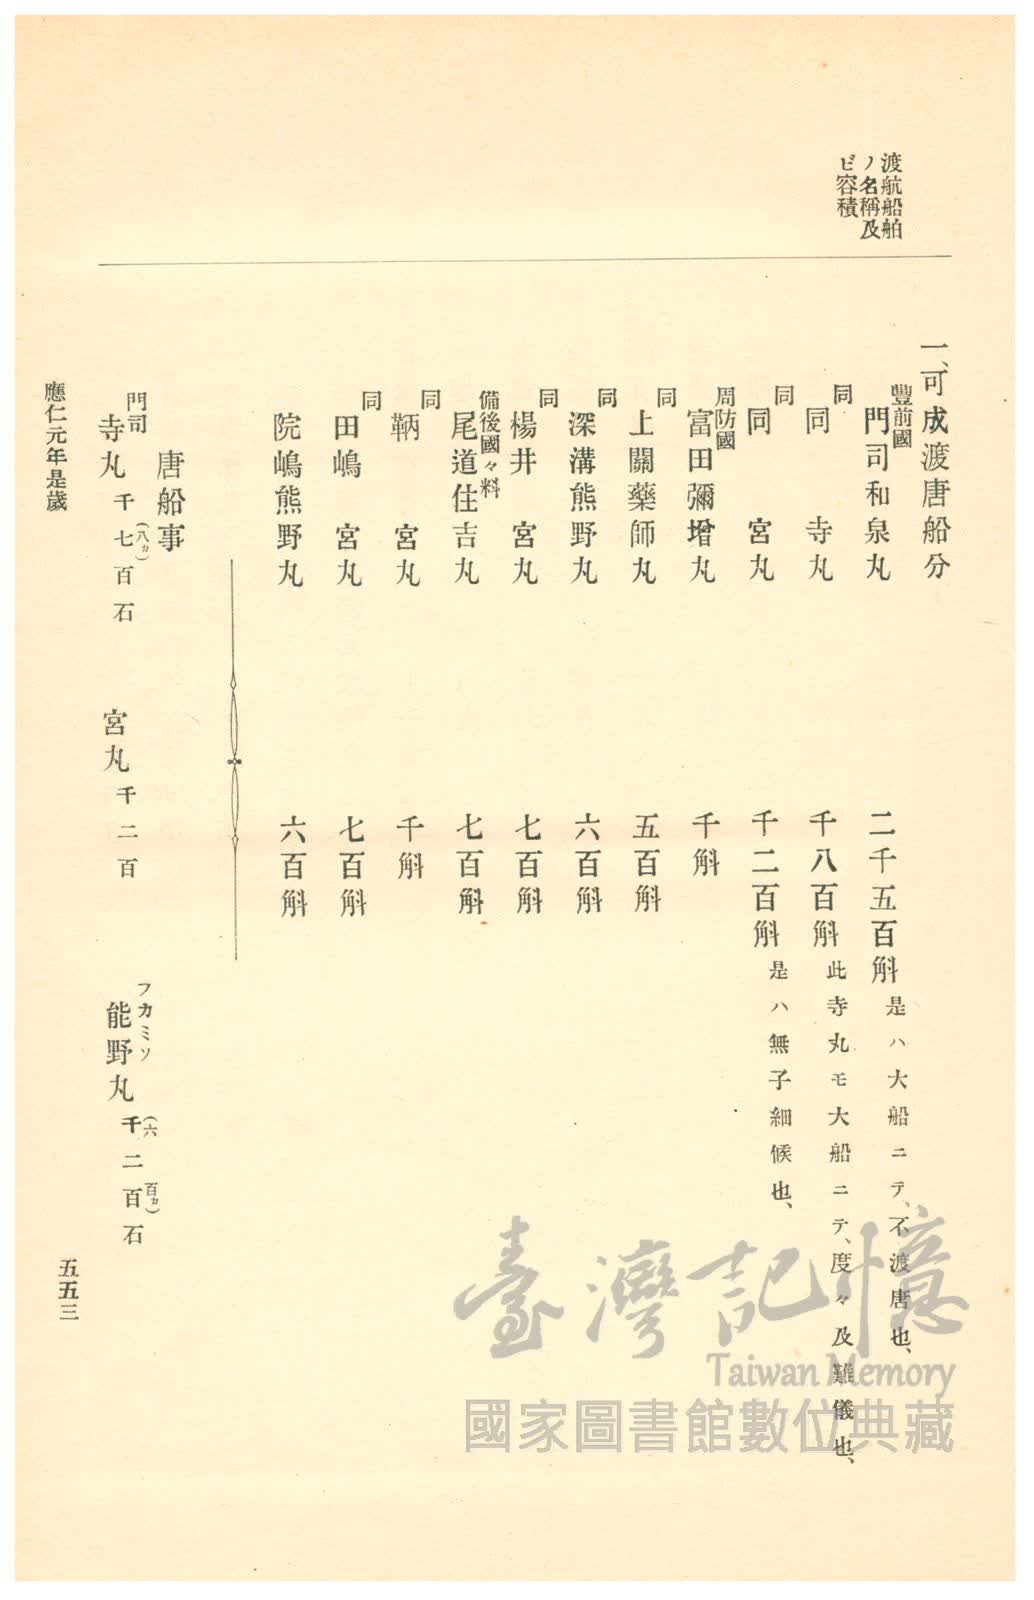 渡航船舶
ノ名稱及
ビ容積
一、可成渡唐船分
豐前國
門司和泉丸 二千五百斛 是ハ大船ニテ、不渡唐也、
同
同 寺丸 千八百斛 此寺丸モ大船ニテ、度々及難儀也、
同
同 宮丸 千二百斛 是ハ無子細候也、
周防國
富田彌增丸 千斛
同
上關藥師丸 五百斛
同
深溝熊野丸 六百斛
同
楊井 宮丸 七百斛
備後國々料
尾道住吉丸 七百斛
同
鞆 宮丸 千斛
同
田嶋 宮丸 七百斛
院嶋熊野丸 六百斛
唐船事
門司 (八カ) フカミソ (六百カ)
寺丸千七百石 宮丸千二百 能野丸千二百石
應仁元年是歲
五五三
臺灣記憶
Taiwan Memory
國家圖書館數位典藏